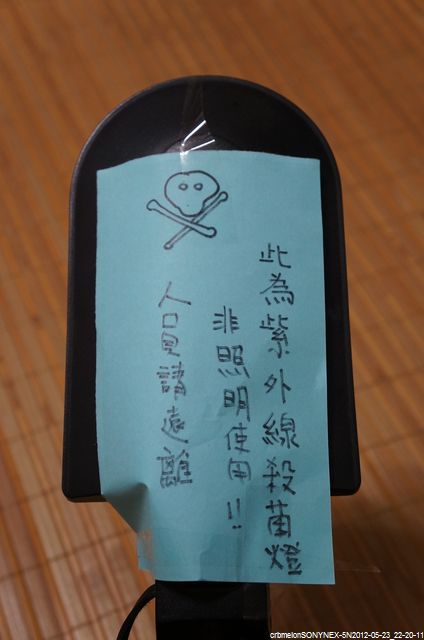 此為紫外線殺菌燈
非照明使用!!
人員請遠離
crbmelonSONYNEX-5N2012-05-23_22-20-11